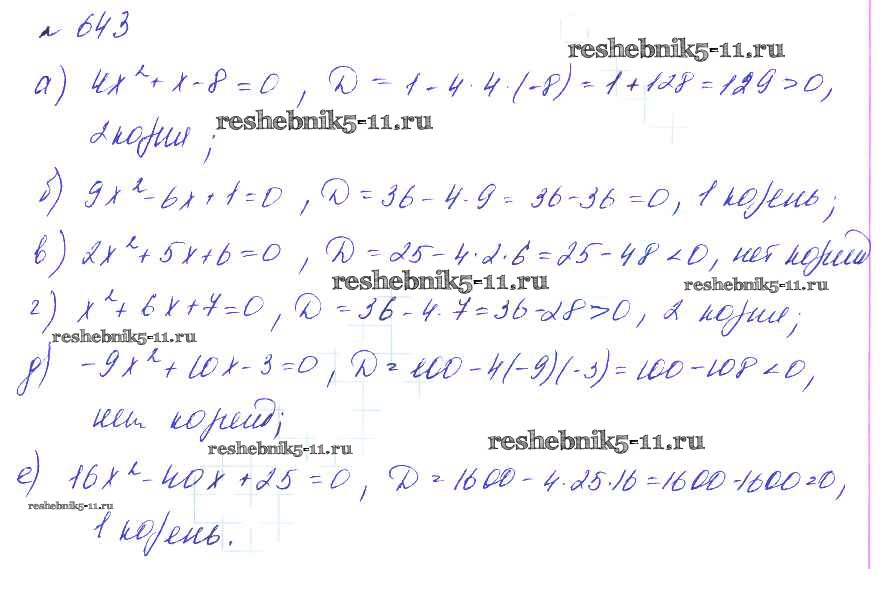 № 643
reshebnik5-11.ru
а) 4x² + x - 8 = 0 , D = 1 - 4 · 4 · (-8) = 1 + 128 = 129 > 0,
2 корня ;
reshebnik5-11.ru
б) 9x² - 6x + 1 = 0 , D = 36 - 4 · 9 = 36 - 36 = 0, 1 корень ;
в) 2x² + 5x + 6 = 0 , D = 25 - 4 · 2 · 6 = 25 - 48 < 0, нет корней
reshebnik5-11.ru
reshebnik5-11.ru
г) x² + 6x + 7 = 0 , D = 36 - 4 · 7 = 36 - 28 > 0, 2 корня ;
reshebnik5-11.ru
д) -9x² + 10x - 3 = 0 , D = 100 - 4(-9)(-3) = 100 - 108 < 0,
нет корней;
reshebnik5-11.ru
reshebnik5-11.ru
е) 16x² - 40x + 25 = 0 , D = 1600 - 4 · 25 · 16 = 1600 - 1600 = 0,
reshebnik5-11.ru
1 корень.